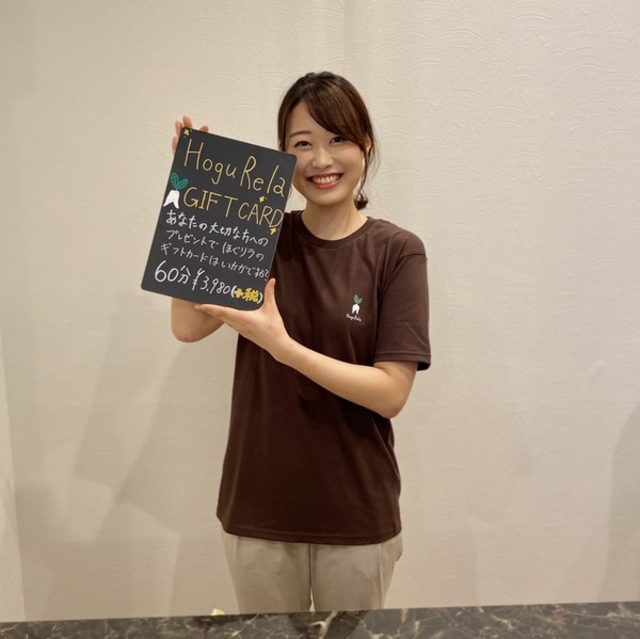 HoguRela
GIFT CARD
あなたの大切な方への
プレゼントで ほぐリラの
ギフトカードはいかがですか?
60分¥3,980(+税)
HoguRela